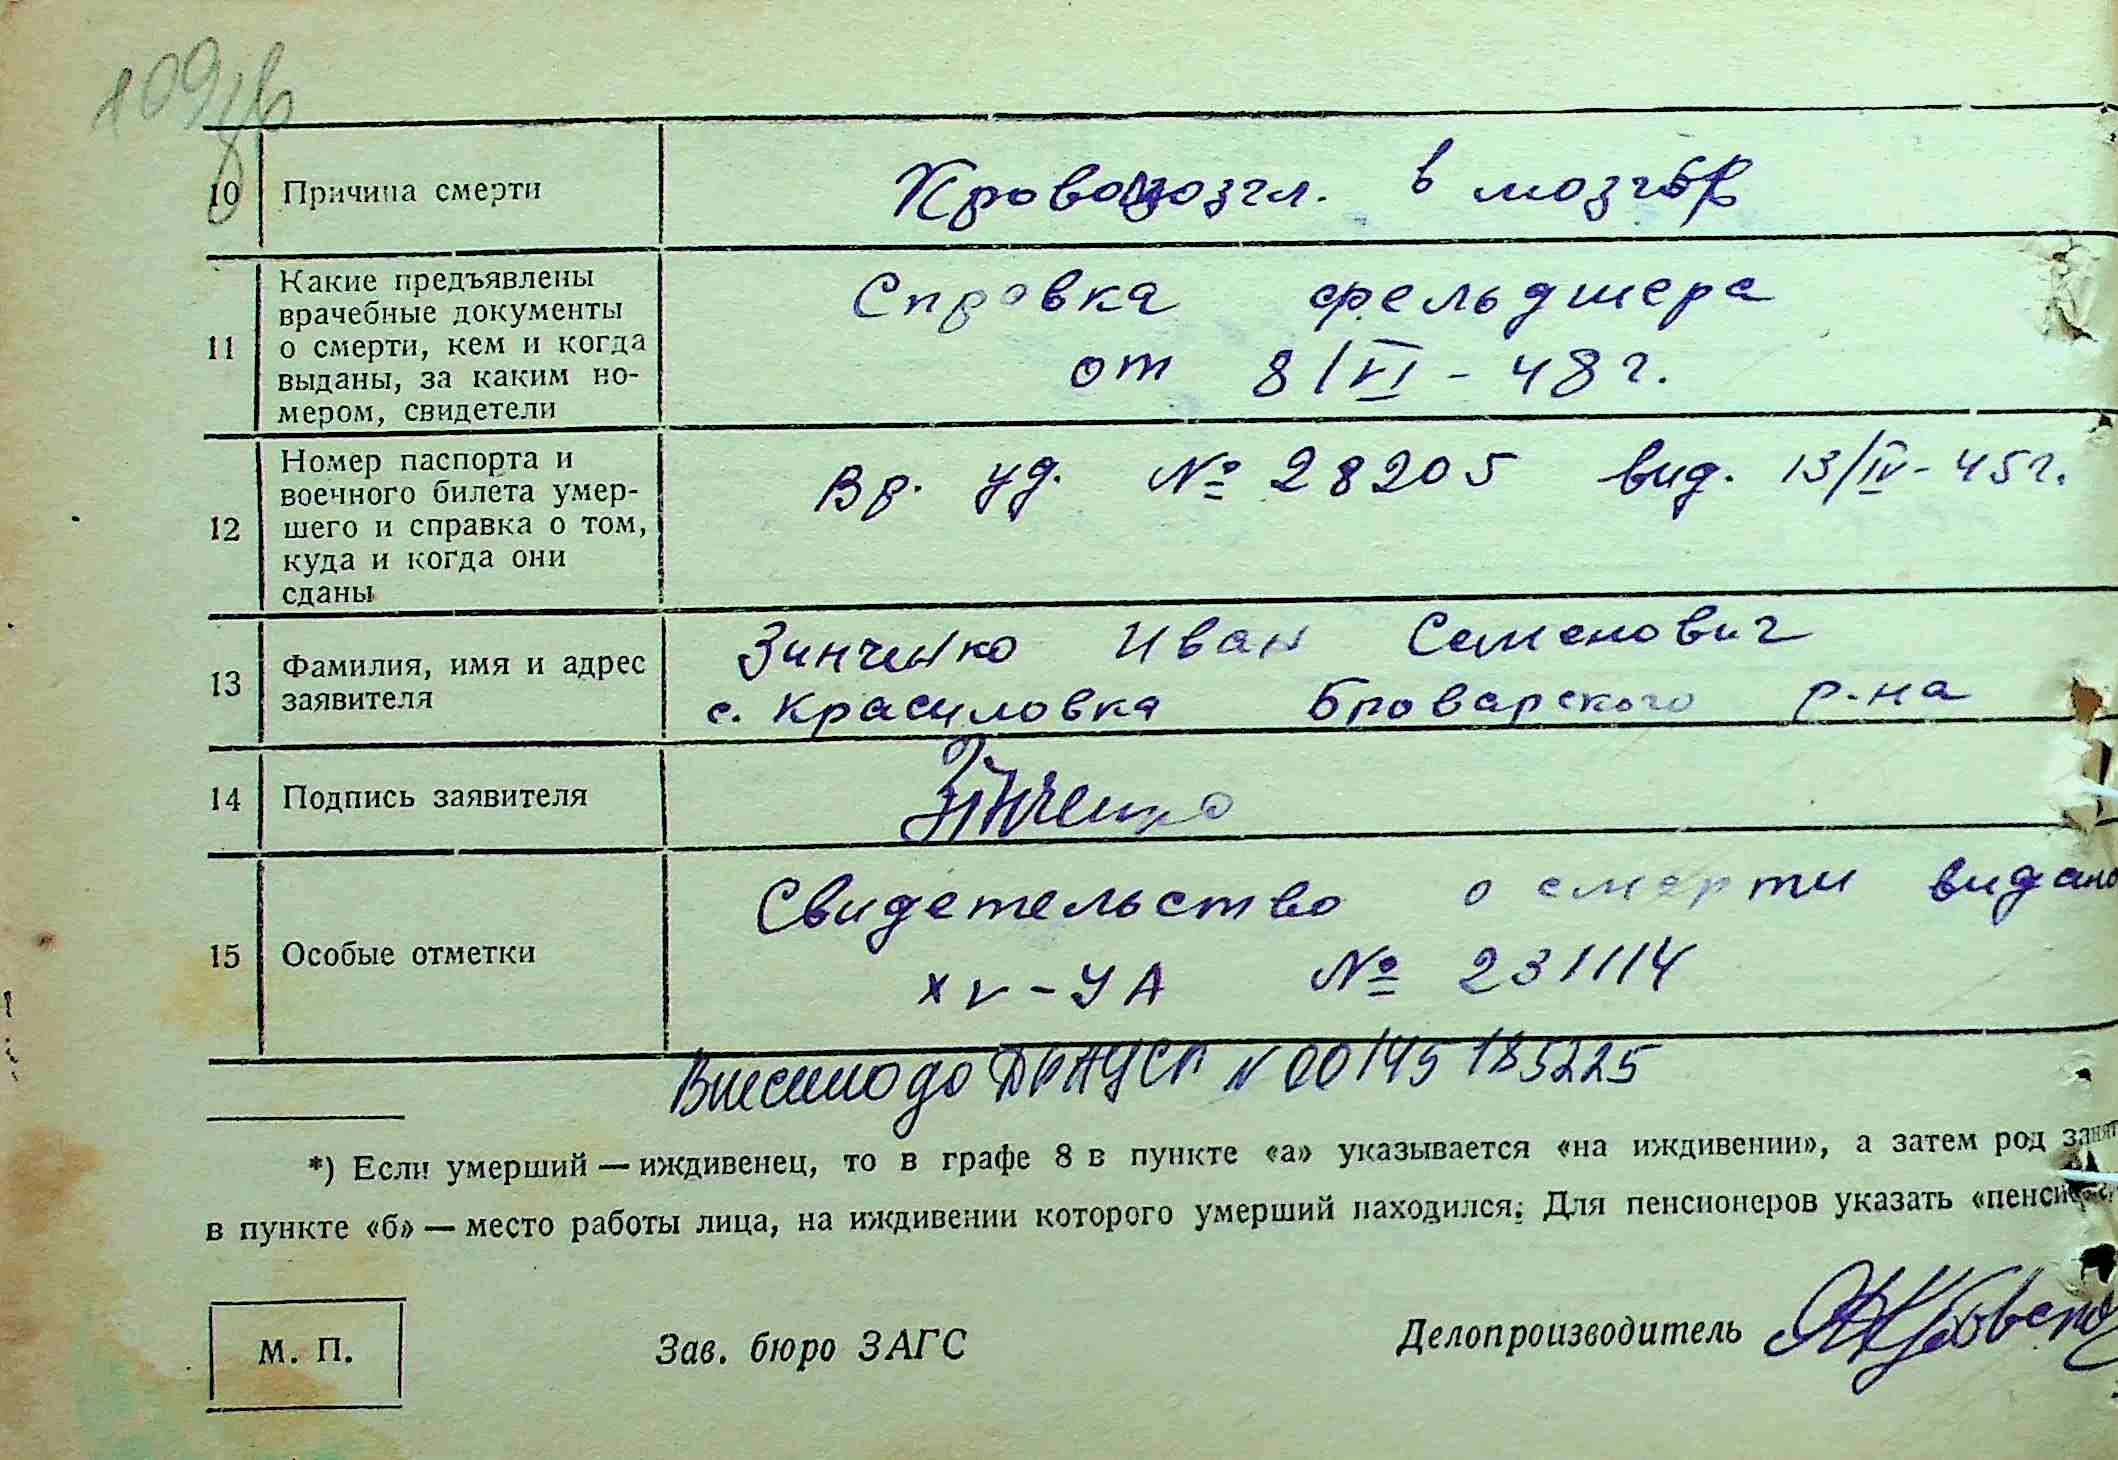 109
10 Причина смерти
в мозгов
11 Какие предъявлены
врачебные документы
о смерти, кем и когда
выданы, за каким но-
мером, свидетели
Справка фельдшера
от 8/VI - 48 г.
12 Номер паспорта и
военного билета умер-
шего и справка о том,
куда и когда они
сданы
Вр. уд. № 28205 вид. 13/IV - 45 г.
13 Фамилия, имя и адрес
заявителя
Зинченко Иван Семенович
с. Красиловка Броварского р-на
14 Подпись заявителя
Зінченко
15 Особые отметки
Свидетельство о смерти видано
XV - УА № 231114
Внесено до ДРАЦСГ N 00145185225
*) Если умерший — иждивенец, то в графе 8 в пункте «а» указывается «на иждивении», а затем род занят
в пункте «б» — место работы лица, на иждивении которого умерший находился. Для пенсионеров указать
М. П.
Зав. бюро ЗАГС
Делопроизводитель